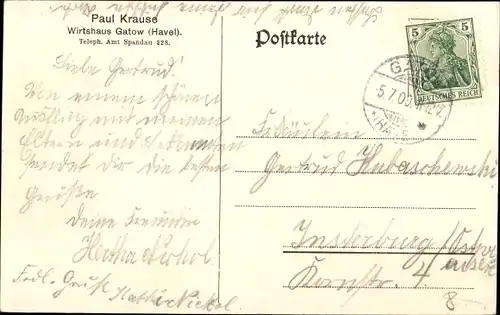 Paul Krause
Wirtshaus Gatow (Havel).
Teleph. Amt Spandau 228.
Postkarte
5
5
DEUTSCHES REICH
5.7.09
Liebe Gertrud!
Von einem schönen
Ausflug mit meinen
Eltern und Bekannten
sendet Dir die besten
Grüße
Deine Freundin
Hertha
Frdl. Gruß
Fräulein
Gertrud Hubaschewski
Insterburg /Ostpr
4
8